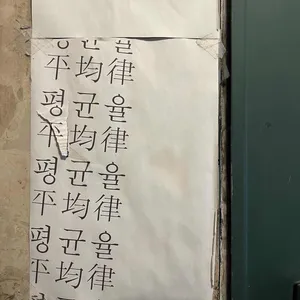 평균율
平均律
평균율
平均律
평균율
平均律
평균율
平均律